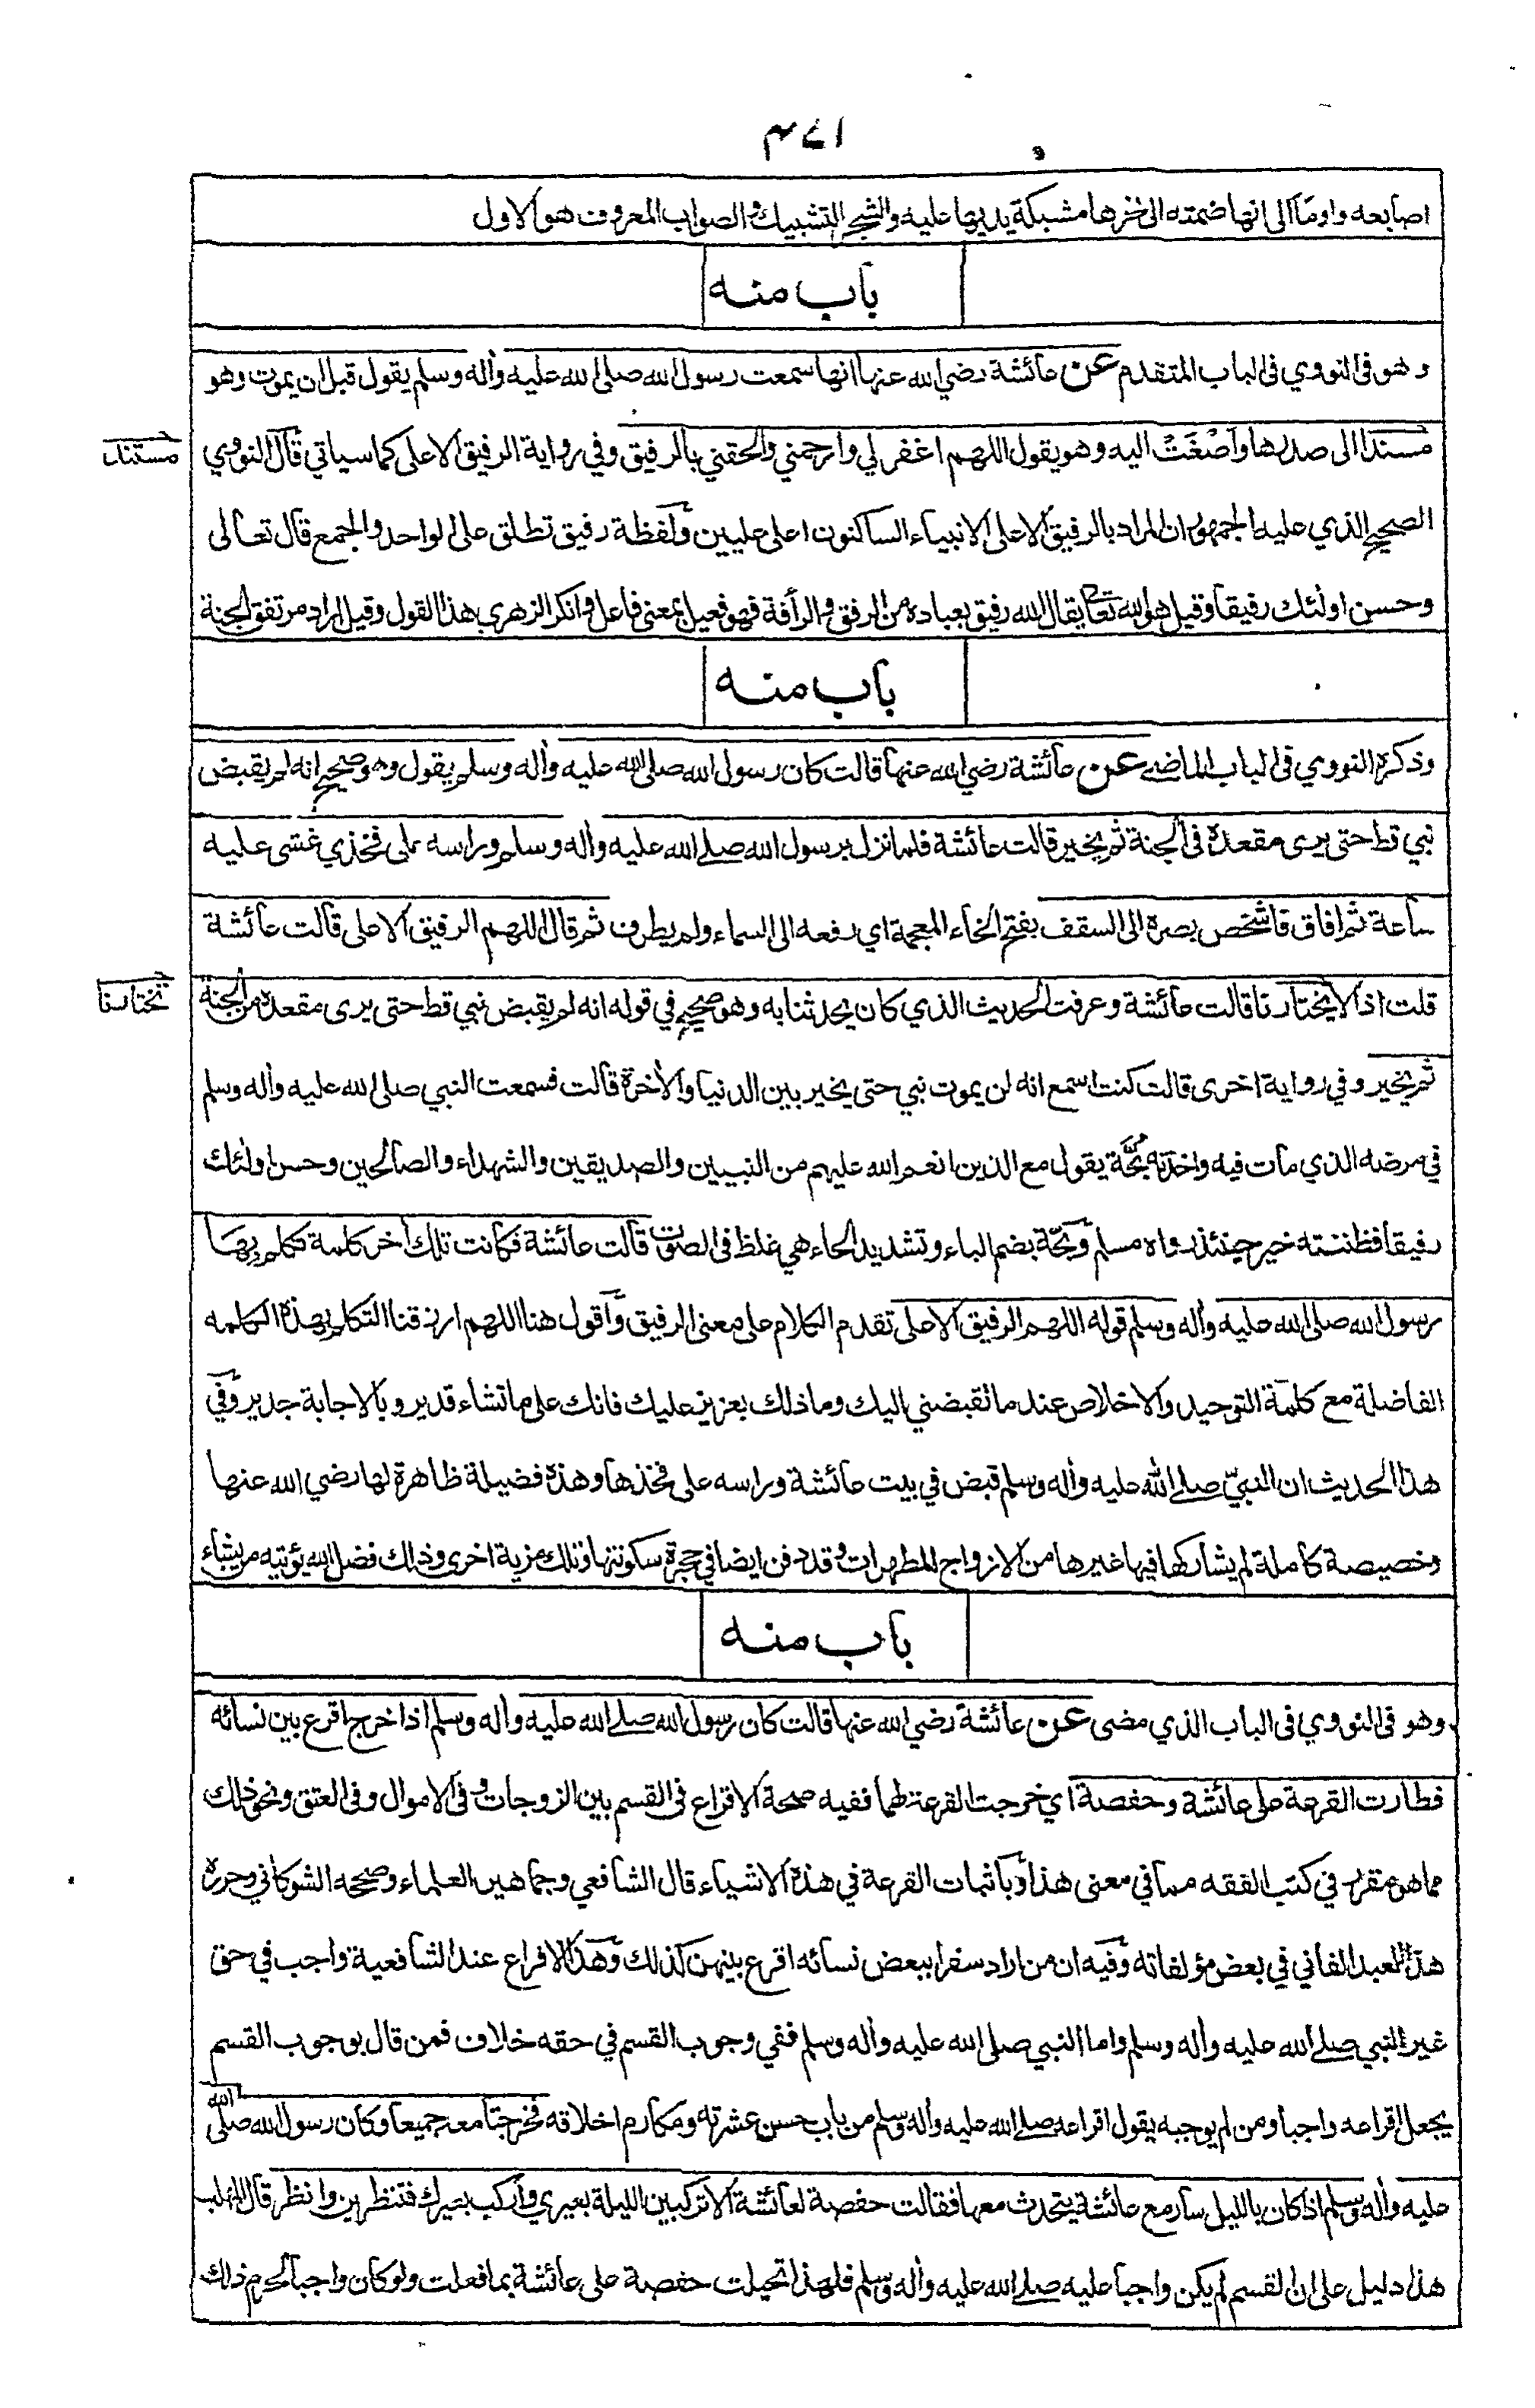 ٤٧١
اصابعه واومأ الى انها ضمته الى نحرها مشبكة يديها عليه والشجر التشبيك والصواب المعروف هو الاول
باب منه
وهو في النووي في الباب المتقدم عن عائشة رضي الله عنها انها سمعت رسول الله صلى الله عليه واٰله وسلم يقول قبل ان يموت وهو
مسندا الى صدرها واَصْغَتْ اليه وهو يقول اللهم اغفر لي وارحمني والحقني بالرفيق وفي رواية الرفيق الاعلى كما سياتي قال النووي
مستند
الصحيح الذي عليه الجمهور ان المراد بالرفيق الاعلى الانبياء الساكنون اعلى عليين ولفظة رفيق تطلق على الواحد والجمع قال تعالى
وحسن اولئك رفيقا وقيل هو الله تعالى يقال الله رفيق بعباده من الرفق والرأفة فهو فعيل بمعنى فاعل وانكر الزهري هذا القول وقيل المراد مرتفق الجنة
باب منه
وذكره النووي في الباب الماضي عن عائشة رضي الله عنها قالت كان رسول الله صلى الله عليه واٰله وسلم يقول وهو صحيح انه لم يقبض
نبي قط حتى يرى مقعده في الجنة ثم يخير قالت عائشة فلما نزل برسول الله صلى الله عليه واٰله وسلم وراسه على فخذي غشى عليه
ساعة ثم افاق فاشخص بصره الى السقف بفتح الخاء المعجمة اي رفعه الى السماء ولم يطرف ثم قال اللهم الرفيق الاعلى قالت عائشة
قلت اذا لا يختارنا قالت عائشة وعرفت الحديث الذي كان يحدثنا به وهو صحيح في قوله انه لم يقبض نبي قط حتى يرى مقعده من الجنة
تختارنا
ثم يخير وفي رواية اخرى قالت كنت اسمع انه لن يموت نبي حتى يخير بين الدنيا والاٰخرة قالت فسمعت النبي صلى الله عليه واٰله وسلم
في مرضه الذي مات فيه واخذته بُحَّة يقول مع الذين انعم الله عليهم من النبيين والصديقين والشهداء والصالحين وحسن اولئك
رفيقا فظننته خير حينئذ رواه مسلم وبحّة بضم الباء وتشديد الحاء هي غلظ في الصوت قالت عائشة فكانت تلك اٰخر كلمة تكلم بها
رسول الله صلى الله عليه واٰله وسلم قوله اللهم الرفيق الاعلى تقدم الكلام على معنى الرفيق واقول هنا اللهم ارزقنا التكلم بهذه الكلمه
الفاضلة مع كلمة التوحيد والاخلاص عند ما تقبضني اليك وما ذلك بعزيز عليك فانك على ما تشاء قدير وبالاجابة جدير وفي
هذا الحديث ان النبيّ صلى الله عليه واٰله وسلم قبض في بيت عائشة وراسه على فخذها وهذه فضيلة ظاهرة لها رضي الله عنها
وخصيصة كاملة لم يشاركها فيها غيرها من الازواج المطهرات وقد دفن ايضا في حجرة سكونتها وتلك مزية اخرى وذلك فضل الله يؤتيه من يشاء
باب منه
وهو في النووي في الباب الذي مضى عن عائشة رضي الله عنها قالت كان رسول الله صلى الله عليه واٰله وسلم اذا خرج اقرع بين نسائه
فطارت القرعة على عائشة وحفصة اي خرجت القرعة لهما ففيه صحة الاقراع في القسم بين الزوجات وفي الاموال وفي العتق ونحو ذلك
مما هو مقرر في كتب الفقه مما في معنى هذا وباثبات القرعة في هذه الاشياء قال الشافعي وجماهير العلماء وصححه الشوكاني وحرره
هذا العبد الفاني في بعض مؤلفاته وفيه ان من اراد سفرا ببعض نسائه اقرع بينهن كذلك وهذا الاقراع عند الشافعية واجب في حق
غير النبي صلى الله عليه واٰله وسلم واما النبي صلى الله عليه واٰله وسلم ففي وجوب القسم في حقه خلاف فمن قال بوجوب القسم
يجعل اقراعه واجبا ومن لم يوجبه يقول اقراعه صلى الله عليه واٰله وسلم من باب حسن عشرته ومكارم اخلاقه فخرجتا معه جميعا وكان رسول الله صلى الله
عليه واٰله وسلم اذا كان بالليل سار مع عائشة يتحدث معها فقالت حفصة لعائشة الا تركبين الليلة بعيري واركب بعيرك فتنظرين وانظر قال المهلب
هذا دليل على ان القسم لم يكن واجبا عليه صلى الله عليه واٰله وسلم فلهذا تحيلت حفصة على عائشة بما فعلت ولو كان واجبا لحرم ذلك